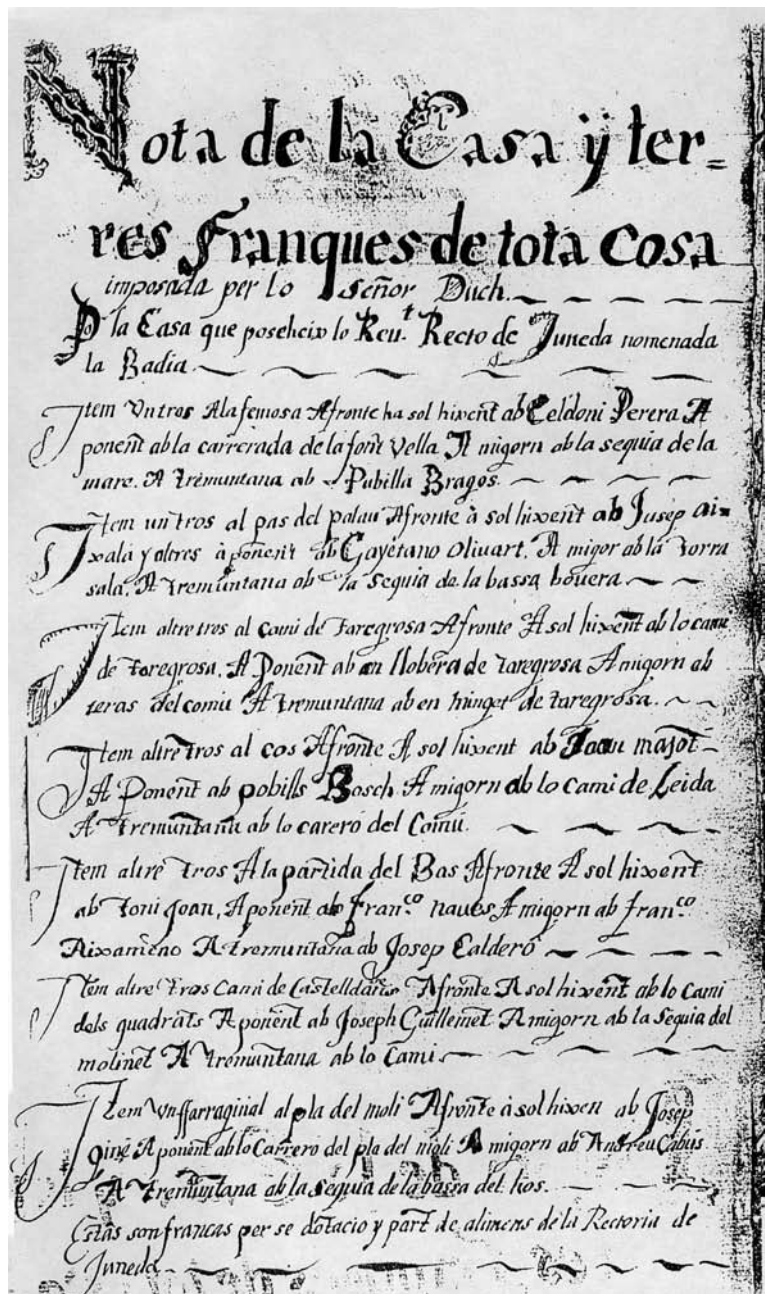 Nota de la Casa ÿ ter=
res Franques de tota Cosa
imposada per lo Señor Duch.
Po la Casa que poseheix lo Reu.t Recto de Juneda nomenada
la Badia
Item Un tros A la femosa Afronte ha sol hixent ab Celdoni Perera A
ponent ab la carrerada de la font Vella A migorn ab la sequia de la
mare. A tremuntana ab Pubilla Bragos.
Item un tros al pas del palau Afronte à sol hixent ab Jusep Ai=
xalà y altres à ponent ab Gayetano Olivart. A migor ab la torra
sala. A tremuntana ab la sequia de la bassa bovera
Item altre tros al cami de taregrosa Afronte A sol hixent ab lo cami
de taregrosa. A Ponent ab en llobera de taregrosa A migorn ab
teras del comú A tremuntana ab en minget de taregrosa.
Item altre tros al cos Afronte A sol hixent ab Joan majot
A Ponent ab pobills Bosch. A migorn ab lo cami de Leida
A tremuntana ab lo careró del Comú.
Item altre tros A la partida del Bas Afronte A sol hixent
ab Toni Joan, A ponent ab Fran.co naves A migorn ab fran.co
Aixameno A tremuntana ab Josep Calderó
Item altre tros Cami de Castelldans Afronte A sol hixent ab lo cami
dels quadrats A ponent ab Joseph Guillemet A migorn ab la sequia del
molinet A tremuntana ab lo Cami
Item Un ffarraginal al pla del moli Afronte à sol hixen ab Josep
giné A ponent ab lo Carrero del pla del moli A migorn ab Andreu Cabús
A tremuntana ab la sequia de la bassa del hos.
Estas son francas per se dotacio y part de alimens de la Rectoria de
Juneda